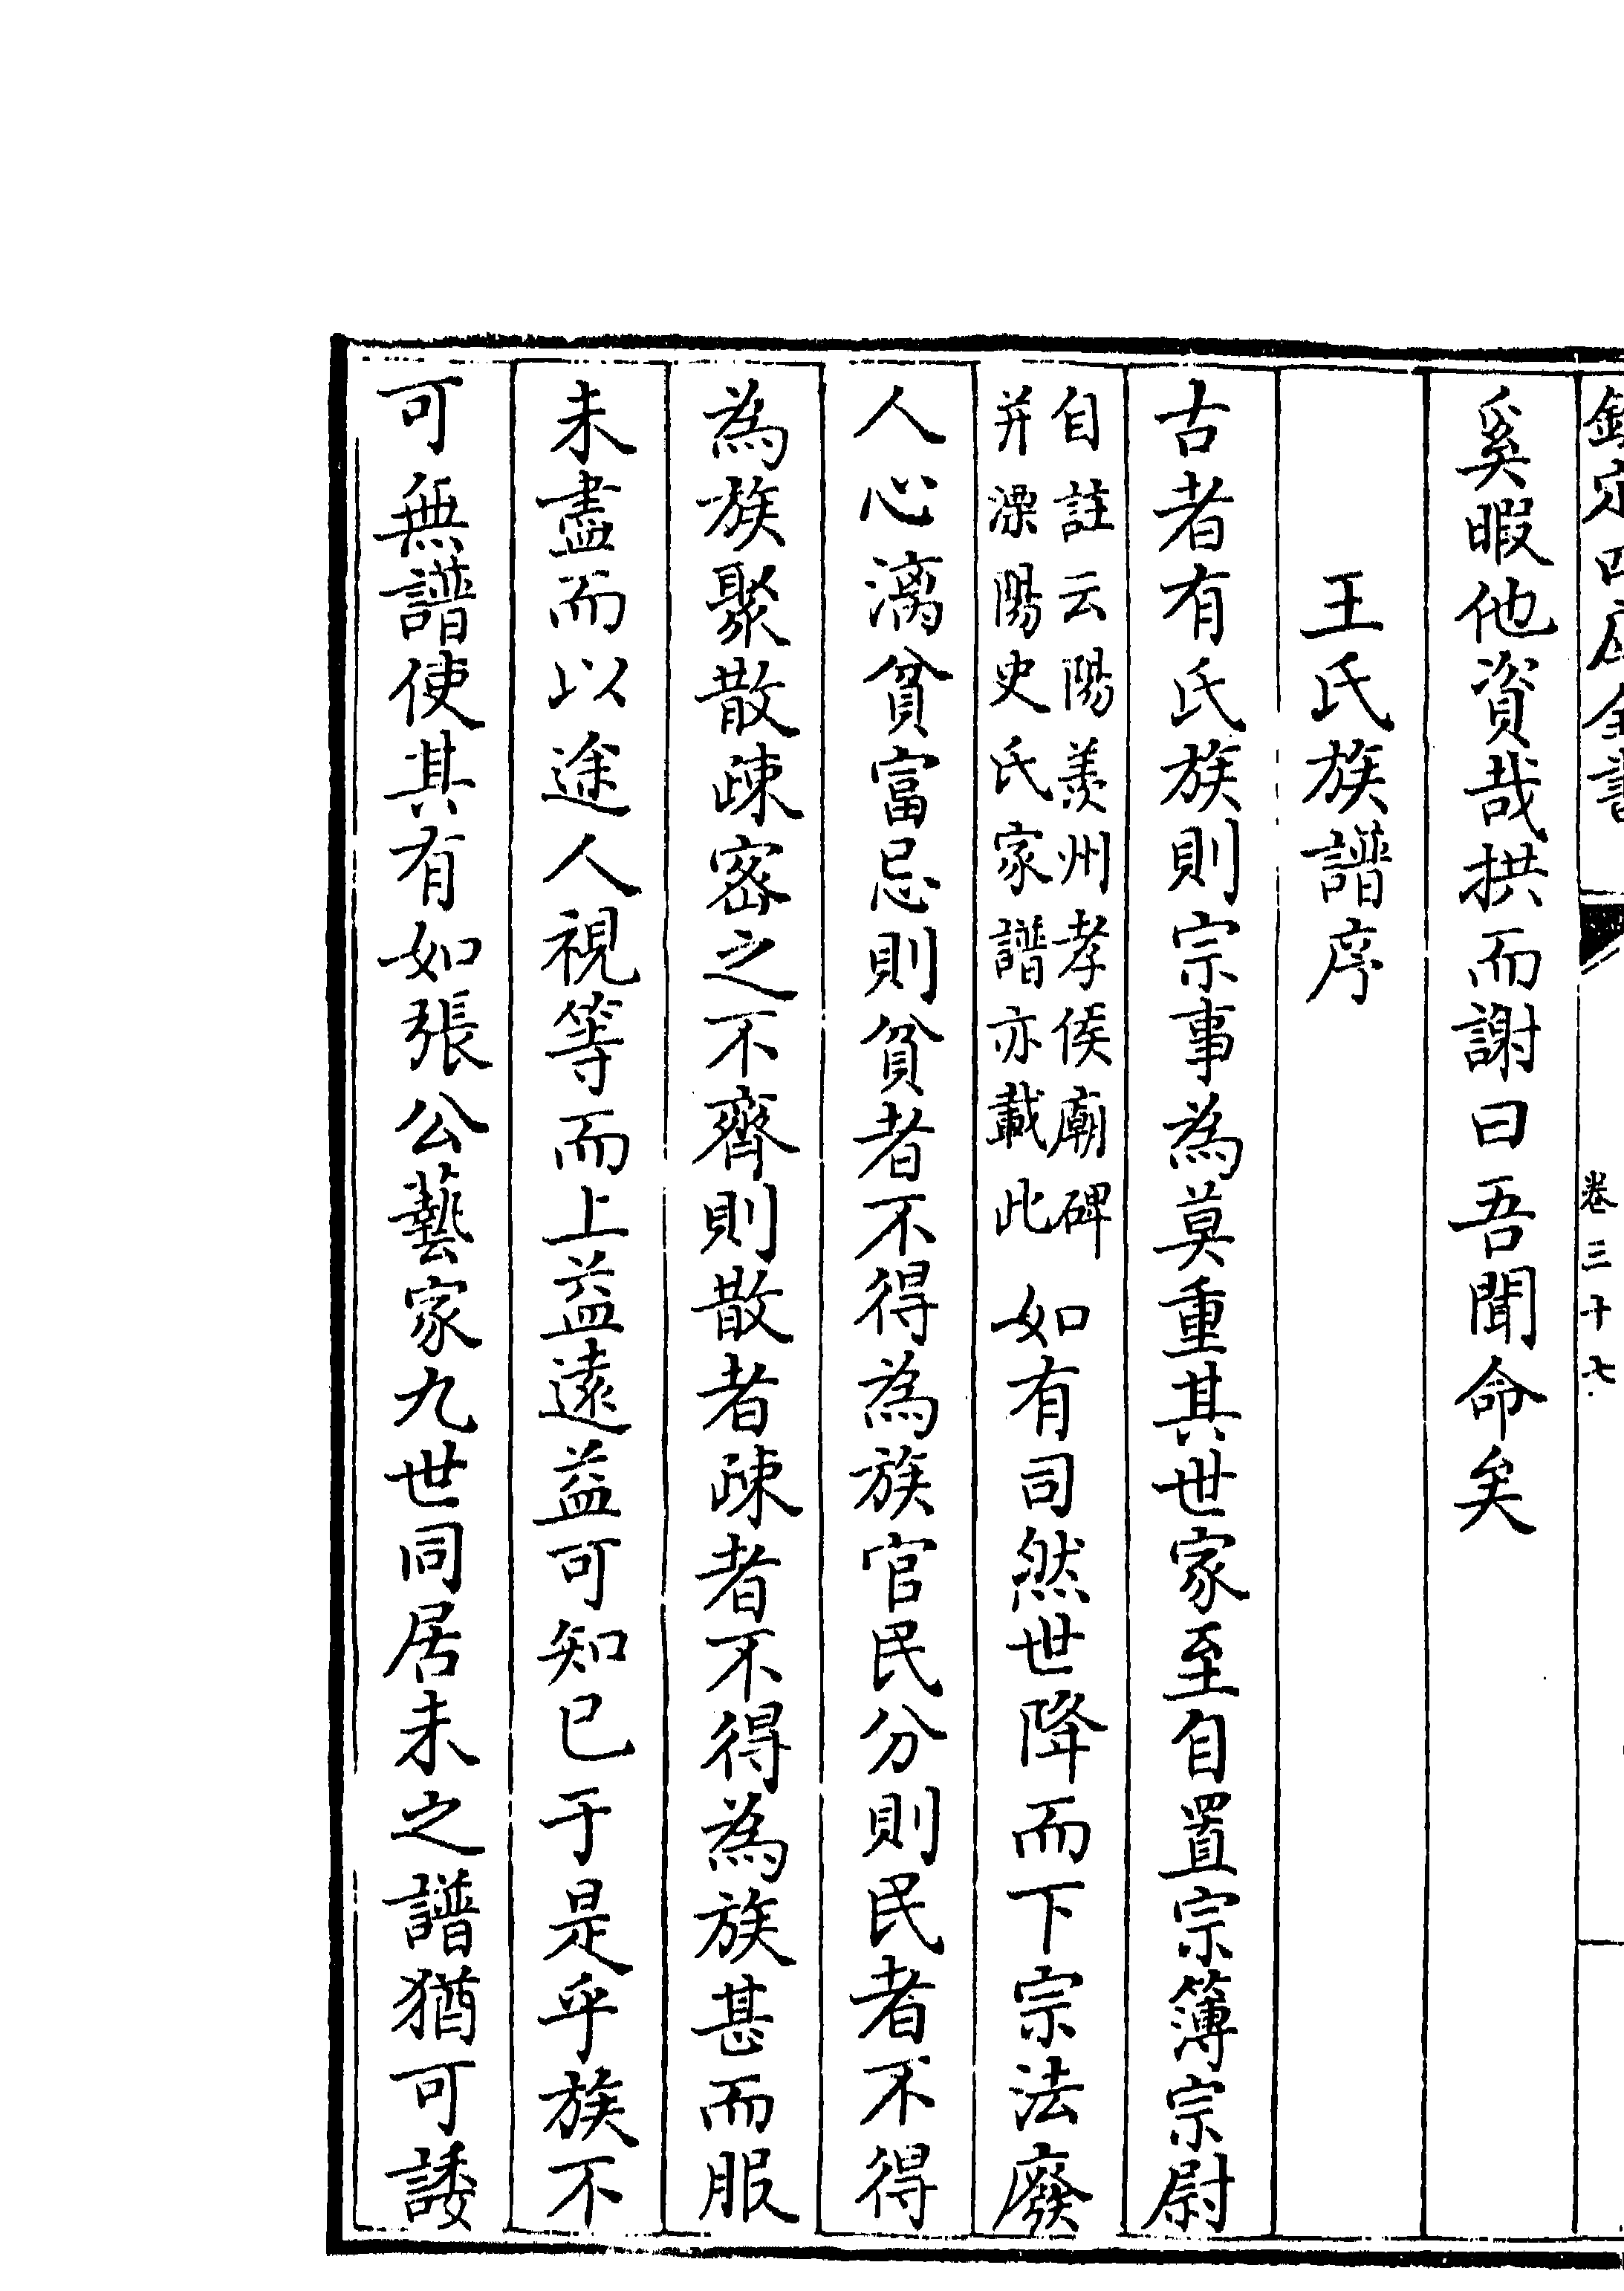 欽定四庫全書
卷三十七
奚暇他資哉拱而謝曰吾聞命矣
王氏族譜序
古者有氏族則宗事為莫重其世家至自置宗簿宗尉
自註云陽羨州孝侯廟碑
并溧陽史氏家譜亦載此
如有司然世降而下宗法廢
人心漓貧富忌則貧者不得為族官民分則民者不得
為族聚散疎密之不齊則散者疎者不得為族甚而服
未盡而以途人視等而上益遠益可知已于是乎族不
可無譜使其有如張公藝家九世同居未之譜猶可諉